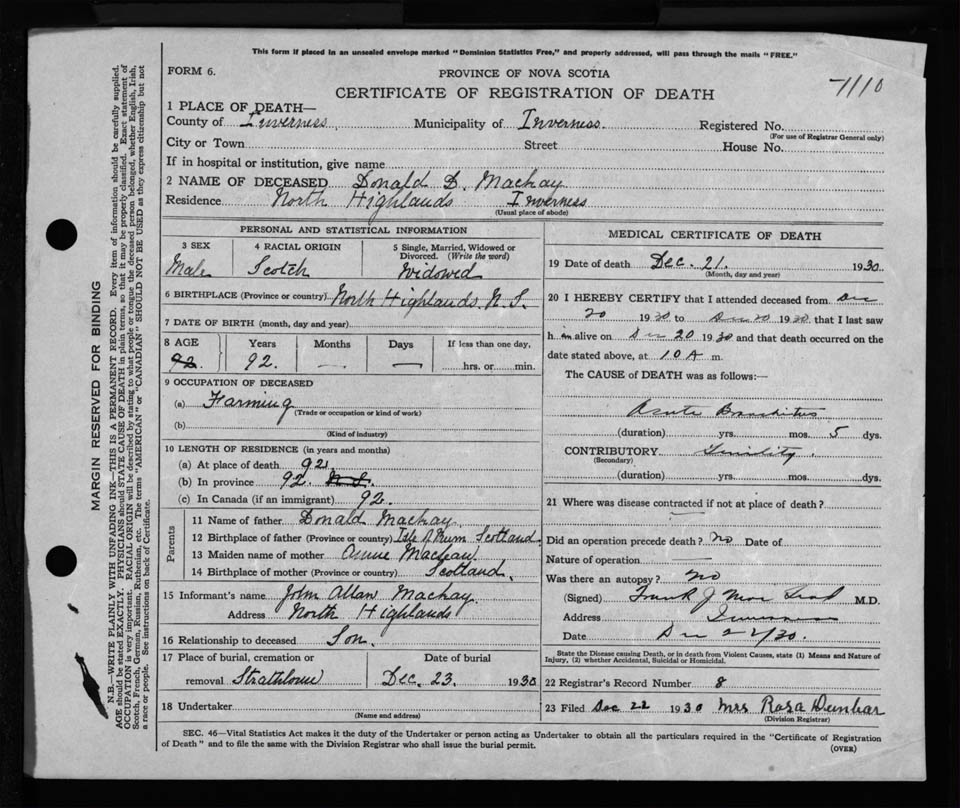 This form if placed in an unsealed envelope marked "Dominion Statistics Free," and properly addressed, will pass through the mails "FREE."
FORM 6.
PROVINCE OF NOVA SCOTIA
7110
CERTIFICATE OF REGISTRATION OF DEATH
1 PLACE OF DEATH—
County of Inverness Municipality of Inverness Registered No.
(For use of Registrar General only)
City or Town Street House No.
If in hospital or institution, give name
2 NAME OF DECEASED Donald D. Mackay
Residence North Highlands Inverness
(Usual place of abode)
PERSONAL AND STATISTICAL INFORMATION
3 SEX 4 RACIAL ORIGIN 5 Single, Married, Widowed or Divorced. (Write the word)
Male Scotch Widowed
6 BIRTHPLACE (Province or country) North Highlands, N.S.
7 DATE OF BIRTH (month, day and year)
8 AGE Years Months Days If less than one day,
92. 92. — — hrs. or min.
9 OCCUPATION OF DECEASED
(a) Farming
(Trade or occupation or kind of work)
(b)
(Kind of industry)
10 LENGTH OF RESIDENCE (in years and months)
(a) At place of death 92.
(b) In province 92. N.S.
(c) In Canada (if an immigrant) 92.
Parents
11 Name of father Donald Mackay
12 Birthplace of father (Province or country) Isle of Rum Scotland
13 Maiden name of mother Annie Maclean
14 Birthplace of mother (Province or country) Scotland.
15 Informant's name John Allan Mackay
Address North Highlands
16 Relationship to deceased Son.
17 Place of burial, cremation or Date of burial
removal Strathlorne Dec. 23. 1930
18 Undertaker
(Name and address)
MEDICAL CERTIFICATE OF DEATH
19 Date of death Dec. 21. 1930
(Month, day and year)
20 I HEREBY CERTIFY that I attended deceased from Dec
20 1930 to Dec 20 1930 that I last saw
h im alive on Dec 20 1930 and that death occurred on the
date stated above, at 10 A m.
The CAUSE of DEATH was as follows:—
Acute Bronchitis
(duration) yrs. mos. 5 dys.
CONTRIBUTORY Senility.
(Secondary)
(duration) yrs. mos. dys.
21 Where was disease contracted if not at place of death?
Did an operation precede death? No Date of
Nature of operation
Was there an autopsy? no
(Signed) Frank J M.D.
Address Inverness
Date Dec 22/30.
State the Disease causing Death, or in death from Violent Causes, state (1) Means and Nature of
Injury, (2) whether Accidental, Suicidal or Homicidal.
22 Registrar's Record Number 8
23 Filed Dec 22 1930 Mrs Rosa Dunbar
(Division Registrar)
SEC. 46—Vital Statistics Act makes it the duty of the Undertaker or person acting as Undertaker to obtain all the particulars required in the "Certificate of Registration
of Death" and to file the same with the Division Registrar who shall issue the burial permit.
(OVER)
MARGIN RESERVED FOR BINDING
N.B.—WRITE PLAINLY WITH UNFADING INK—THIS IS A PERMANENT RECORD. Every item of information should be carefully supplied.
AGE should be stated EXACTLY. PHYSICIANS should STATE CAUSE OF DEATH in plain terms, so that it may be properly classified. Exact statement of
OCCUPATION is very important. RACIAL ORIGIN will be described by stating to what people or tongue the deceased person belonged, whether English, Irish,
Scotch, French, German, Russian, Ruthenian, etc. The terms "AMERICAN" or "CANADIAN" SHOULD NOT BE USED as they express citizenship but not
a race or people. See instructions on back of Certificate.